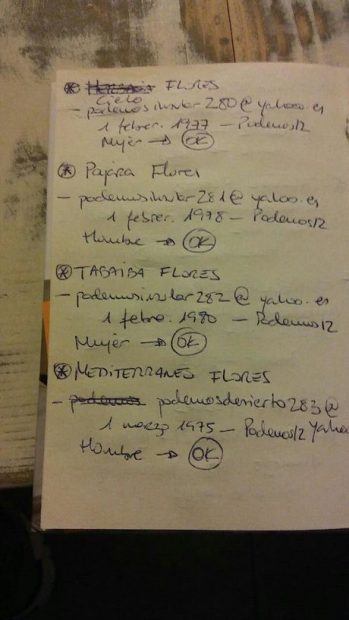 FLORES
Cielo
- podemosinsular280@yahoo.es
1 febrer. 1977 - Podemos12
Mujer → OK
Pajara Flores
- podemosinsular281@yahoo.es
1 febrer. 1978 - Podemos12
Hombre → OK
TABAIBA FLORES
- podemosinsular282@yahoo.es
1 febre. 1980 - Podemos12
Mujer → OK
MEDITERRANEO FLORES
- podemos podemosdesierto283@
1 marzo 1975 - Podemos12 Yahoo
Hombre → OK